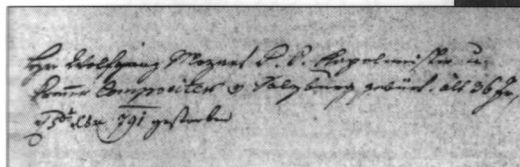 Hr Wolfgang Mozart K. K. Kapelmeister u.
Kamer Compositeur v Salzburg gebürt. alt 36 Jr,
5t xber 791 gestorben